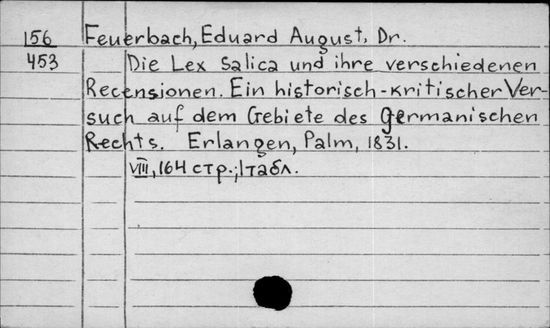 156 Feuerbach, Eduard August, Dr.
453 Die Lex Salica und ihre verschiedenen
Recensionen. Ein historisch-kritischer Ver-
such auf dem Gebiete des germanischen
Rechts. Erlangen, Palm, 1831.
VIII, 164 стр.; 1 табл.